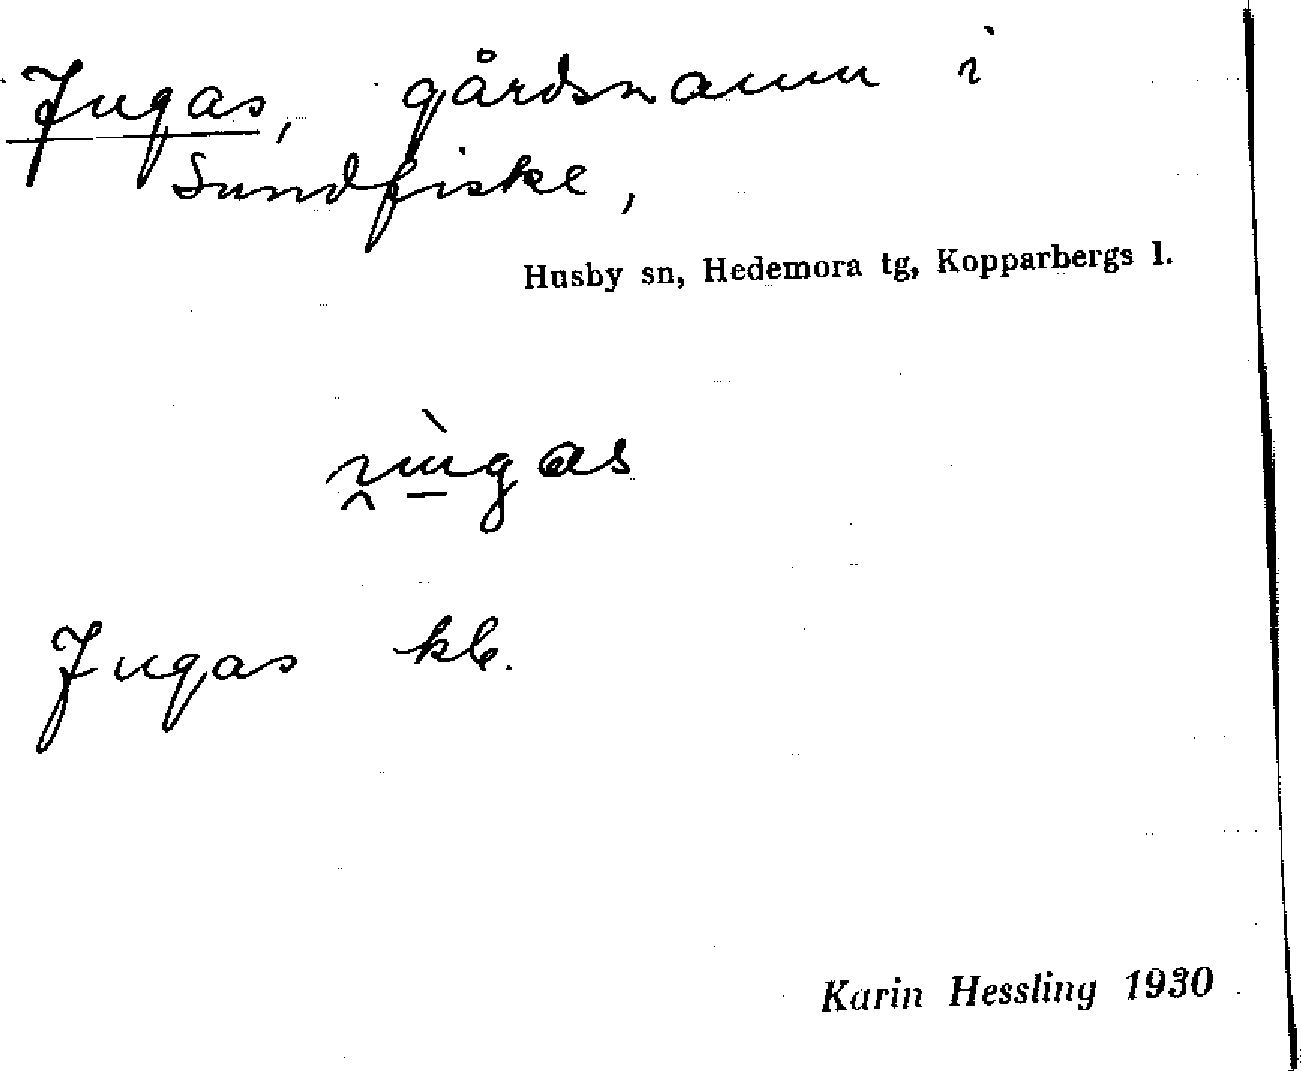 Jugas, gårdsnamn i
Sundfiske,
Husby sn, Hedemora tg, Kopparbergs l.
Jugas kb.
Karin Hessling 1930